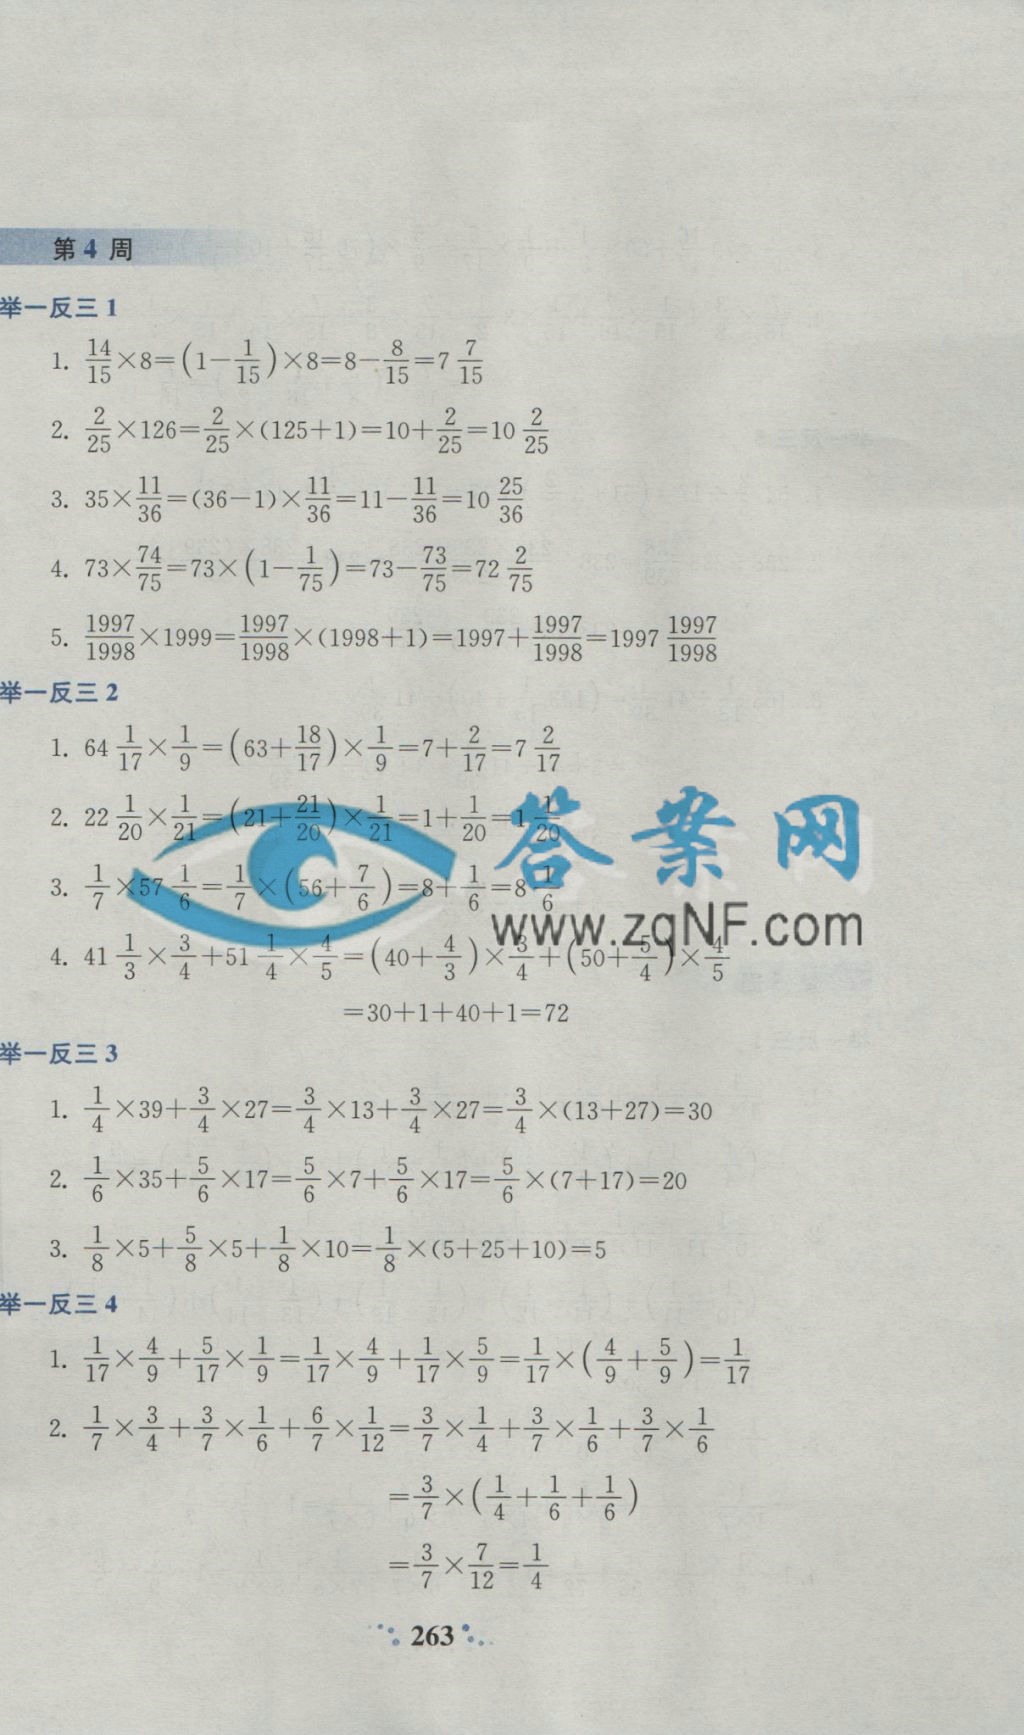 第4周
举一反三1
1. 14/15×8=(1-1/15)×8=8-8/15=7 7/15
2. 2/25×126=2/25×(125+1)=10+2/25=10 2/25
3. 35×11/36=(36-1)×11/36=11-11/36=10 25/36
4. 73×74/75=73×(1-1/75)=73-73/75=72 2/75
5. 1997/1998×1999=1997/1998×(1998+1)=1997+1997/1998=1997 1997/1998
举一反三2
1. 64 1/17×1/9=(63+18/17)×1/9=7+2/17=7 2/17
2. 22 1/20×1/21=(21+21/20)×1/21=1+1/20=1 1/20
答案网
3. 1/7×57 1/6=1/7×(56+7/6)=8+1/6=8 1/6
www.zqNF.com
4. 41 1/3×3/4+51 1/4×4/5=(40+4/3)×3/4+(50+5/4)×4/5
=30+1+40+1=72
举一反三3
1. 1/4×39+3/4×27=3/4×13+3/4×27=3/4×(13+27)=30
2. 1/6×35+5/6×17=5/6×7+5/6×17=5/6×(7+17)=20
3. 1/8×5+5/8×5+1/8×10=1/8×(5+25+10)=5
举一反三4
1. 1/17×4/9+5/17×1/9=1/17×4/9+1/17×5/9=1/17×(4/9+5/9)=1/17
2. 1/7×3/4+3/7×1/6+6/7×1/12=3/7×1/4+3/7×1/6+3/7×1/6
=3/7×(1/4+1/6+1/6)
=3/7×7/12=1/4
263